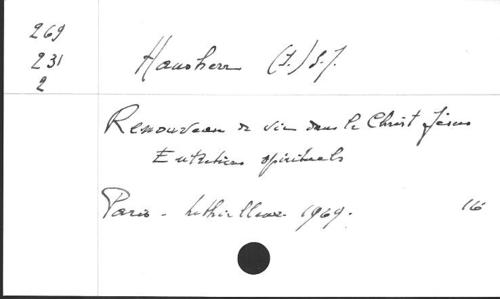 269
231
2
Hausherr (I.) S.J.
Renouveau de vie dans le Christ Jésus
Entretiens spirituels
Paris - Lethielleux 1969. 16